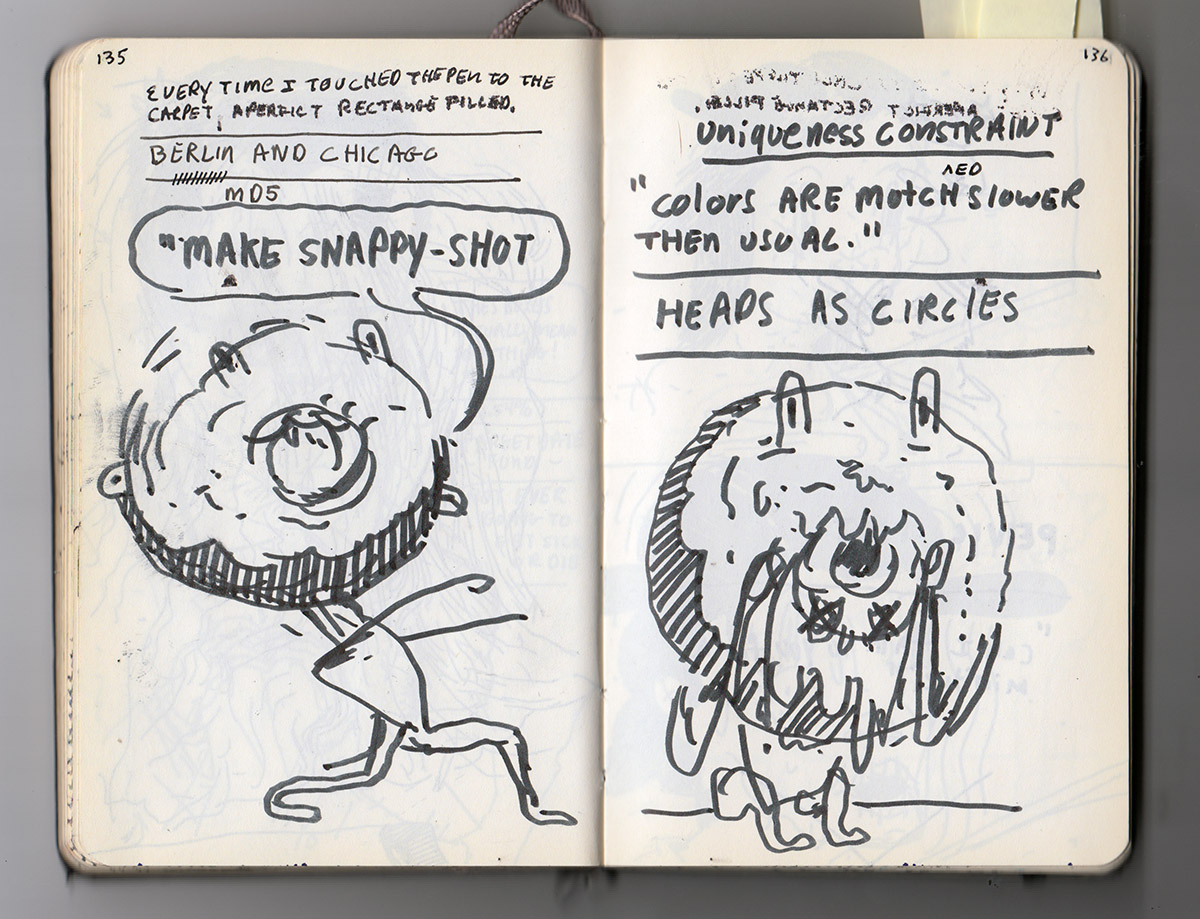 135
EVERY TIME I TOUCHED THE PEN TO THE
CARPET, A PERFICT RECTANGE FILLED.
BERLIN AND CHICAGO
MD5
"MAKE SNAPPY-SHOT
136
UNIQUENESS CONSTRAINT
"COLORS ARE MATCHED SLOWER
THEN USUAL."
HEADS AS CIRCLES